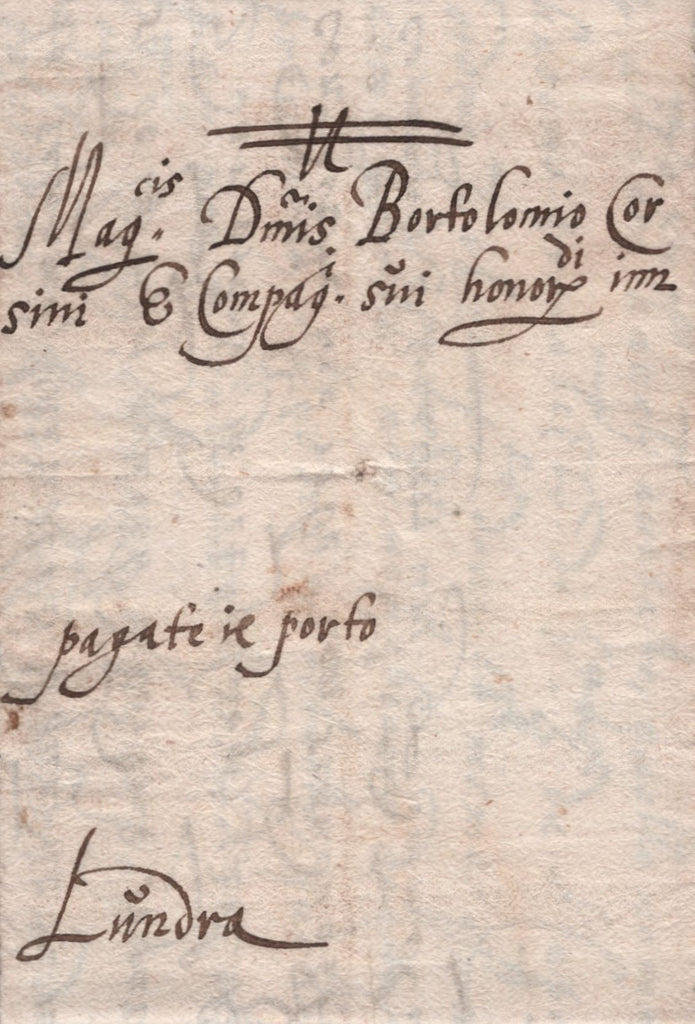 Mag.cis Dm̃is Bortolomio Cor
sini & Compag.i sŭi honor.di im
pagate il porto
Lŭndra